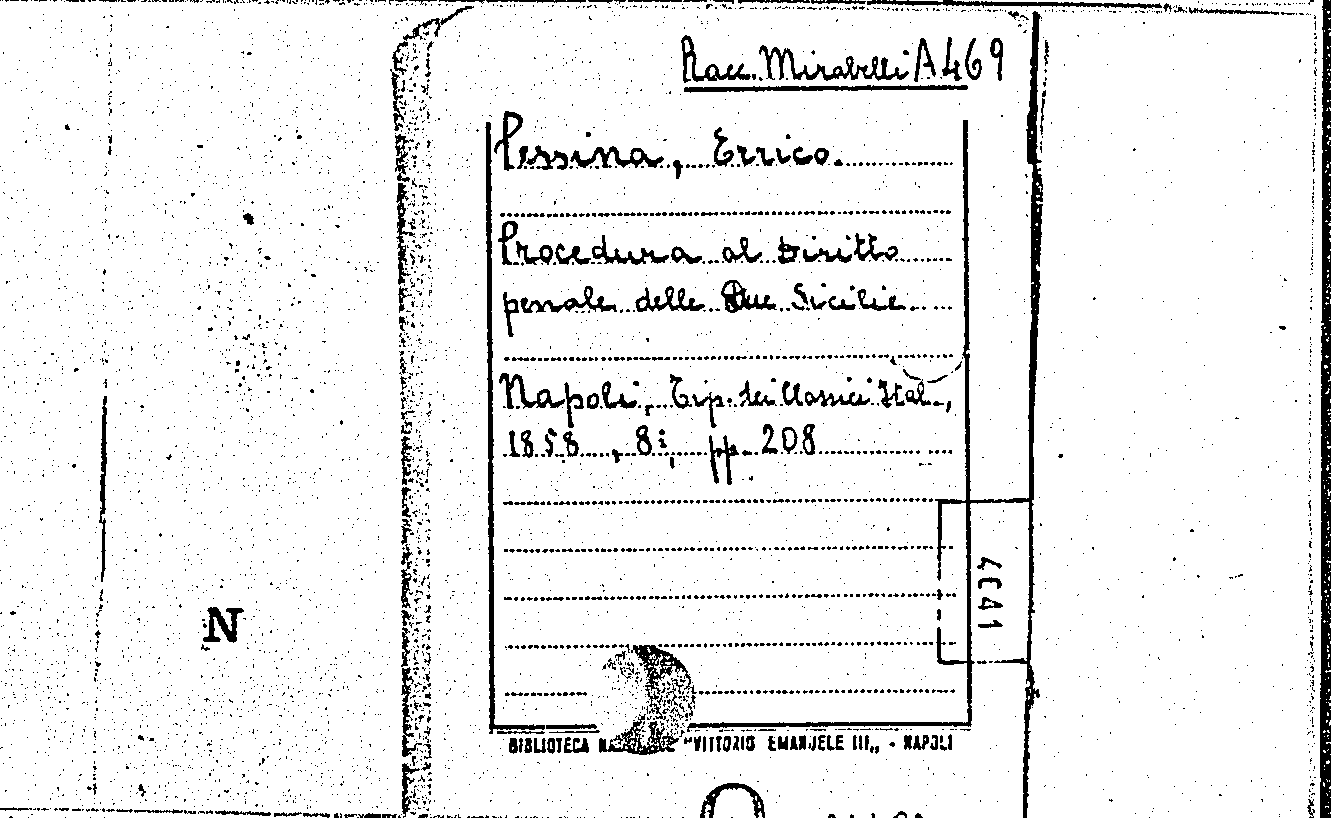 Racc. Mirabelli A 469
Pessina, Errico.
Procedura al Diritto
penale delle Due Sicilie
Napoli, Tip. dei Classici Ital.,
1858, 8°, pp. 208
4C41
N
BIBLIOTECA "VITTORIO EMANUELE III„ - NAPOLI